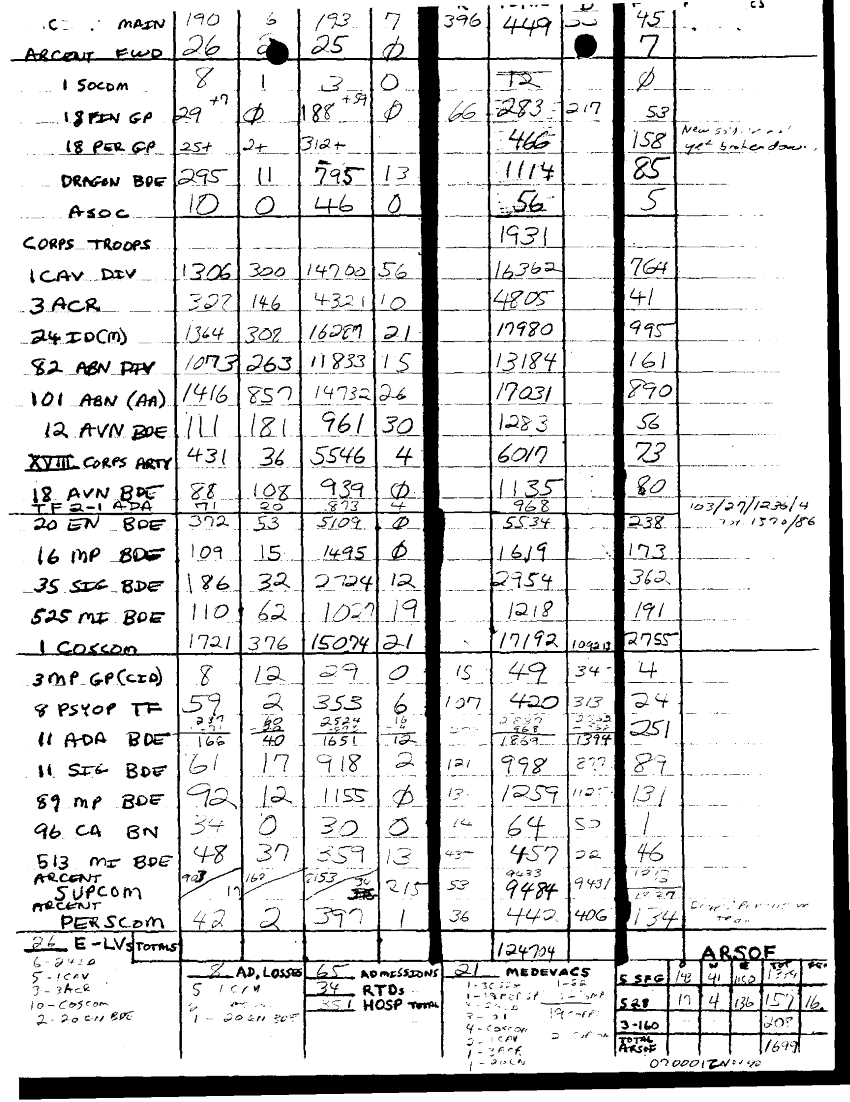 MAIN 190 6 193 7 396 449 45
ARCENT FWD 26 25 Ø 7
1 SOCOM 8 1 3 0 12 Ø
18 FIN GP 29 +7 Ø 188 +59 Ø 66 283 217 53
18 PER GP 25+ 2+ 312+ 466 158 yet broken down
DRAGON BDE 295 11 795 13 1114 85
ASOC 10 0 46 0 56 5
CORPS TROOPS 1931
1 CAV DIV 1306 300 14700 56 16362 764
3 ACR 327 146 4321 10 4805 41
24 ID(M) 1364 308 16287 21 17980 995
82 ABN DIV 1073 263 11833 15 13184 161
101 ABN (AA) 1416 857 14732 26 17031 890
12 AVN BDE 111 181 961 30 1283 56
XVIII CORPS ARTY 431 36 5546 4 6017 73
18 AVN BDE 88 108 939 Ø 1135 80
TF 2-1 ADA 71 20 873 4 968 103/27/1236/4
20 EN BDE 372 53 5109 Ø 5534 238
16 MP BDE 109 15 1495 Ø 1619 173
35 SIG BDE 186 32 2724 12 2954 362
525 MI BDE 110 62 1027 19 1218 191
1 COSCOM 1721 376 15074 21 17192 2755
3 MP GP (CID) 8 12 29 0 15 49 34 4
8 PSYOP TF 59 2 353 6 107 420 313 24
237 60 2524 16 2837
11 ADA BDE 166 40 1651 12 1869 1394 251
11 SIG BDE 61 17 918 2 121 998 877 89
89 MP BDE 92 12 1155 Ø 1259 131
96 CA BN 34 0 30 0 14 64 50 1
513 MI BDE 48 37 359 13 435 457 22 46
ARCENT SUPCOM 215 53 9433 9484 9431
ARCENT PERSCOM 42 2 397 1 36 442 406 134
26 E-LVS TOTALS 124704 ARSOF
6-24ID 8 AD. LOSSES 65 ADMISSIONS 21 MEDEVACS
5-1CAV 5 1CAV 34 RTDS 5 SFG
3-3ACR 351 HOSP TOTAL
10-COSCOM 528 17 4 136 157 16
2-20EN BDE 1-20EN BDE 4-COSCOM 3-160
2-1CAV TOTAL ARSOF 1699
1-3ACR
1-20EN